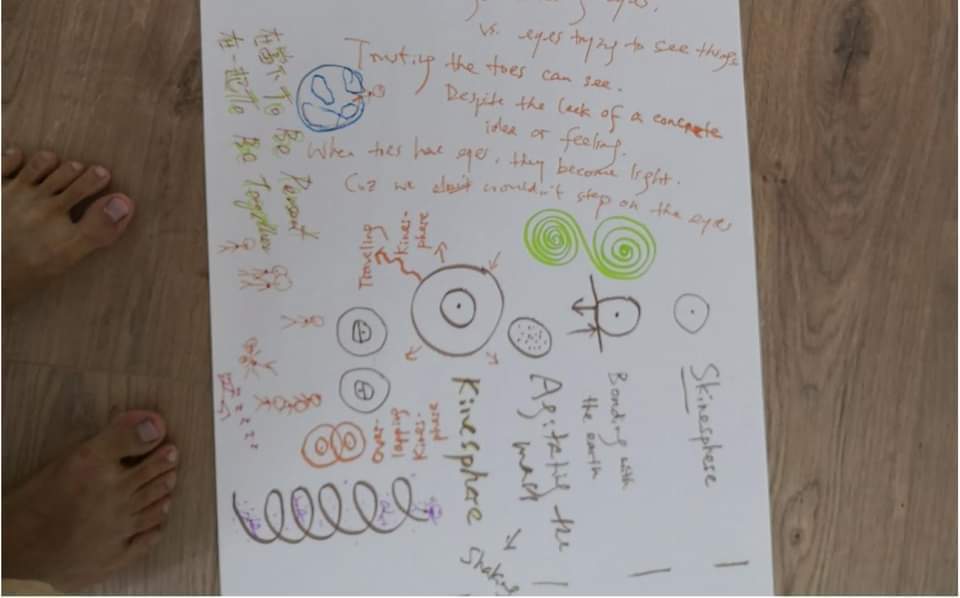 vs. eyes trying to see things
Trusting the toes can see.
Despite the lack of a concrete
idea or feeling.
When toes have eyes, they become light.
Cuz we wouldn't step on the eyes
Skinesphere
Bonding with
the earth
Agitating the
mass
Shaking
Kinesphere
Traveling
kines-
phere
Over-
lapping
Kines-
phere
在當下 To Be Present
在一起 To Be Together